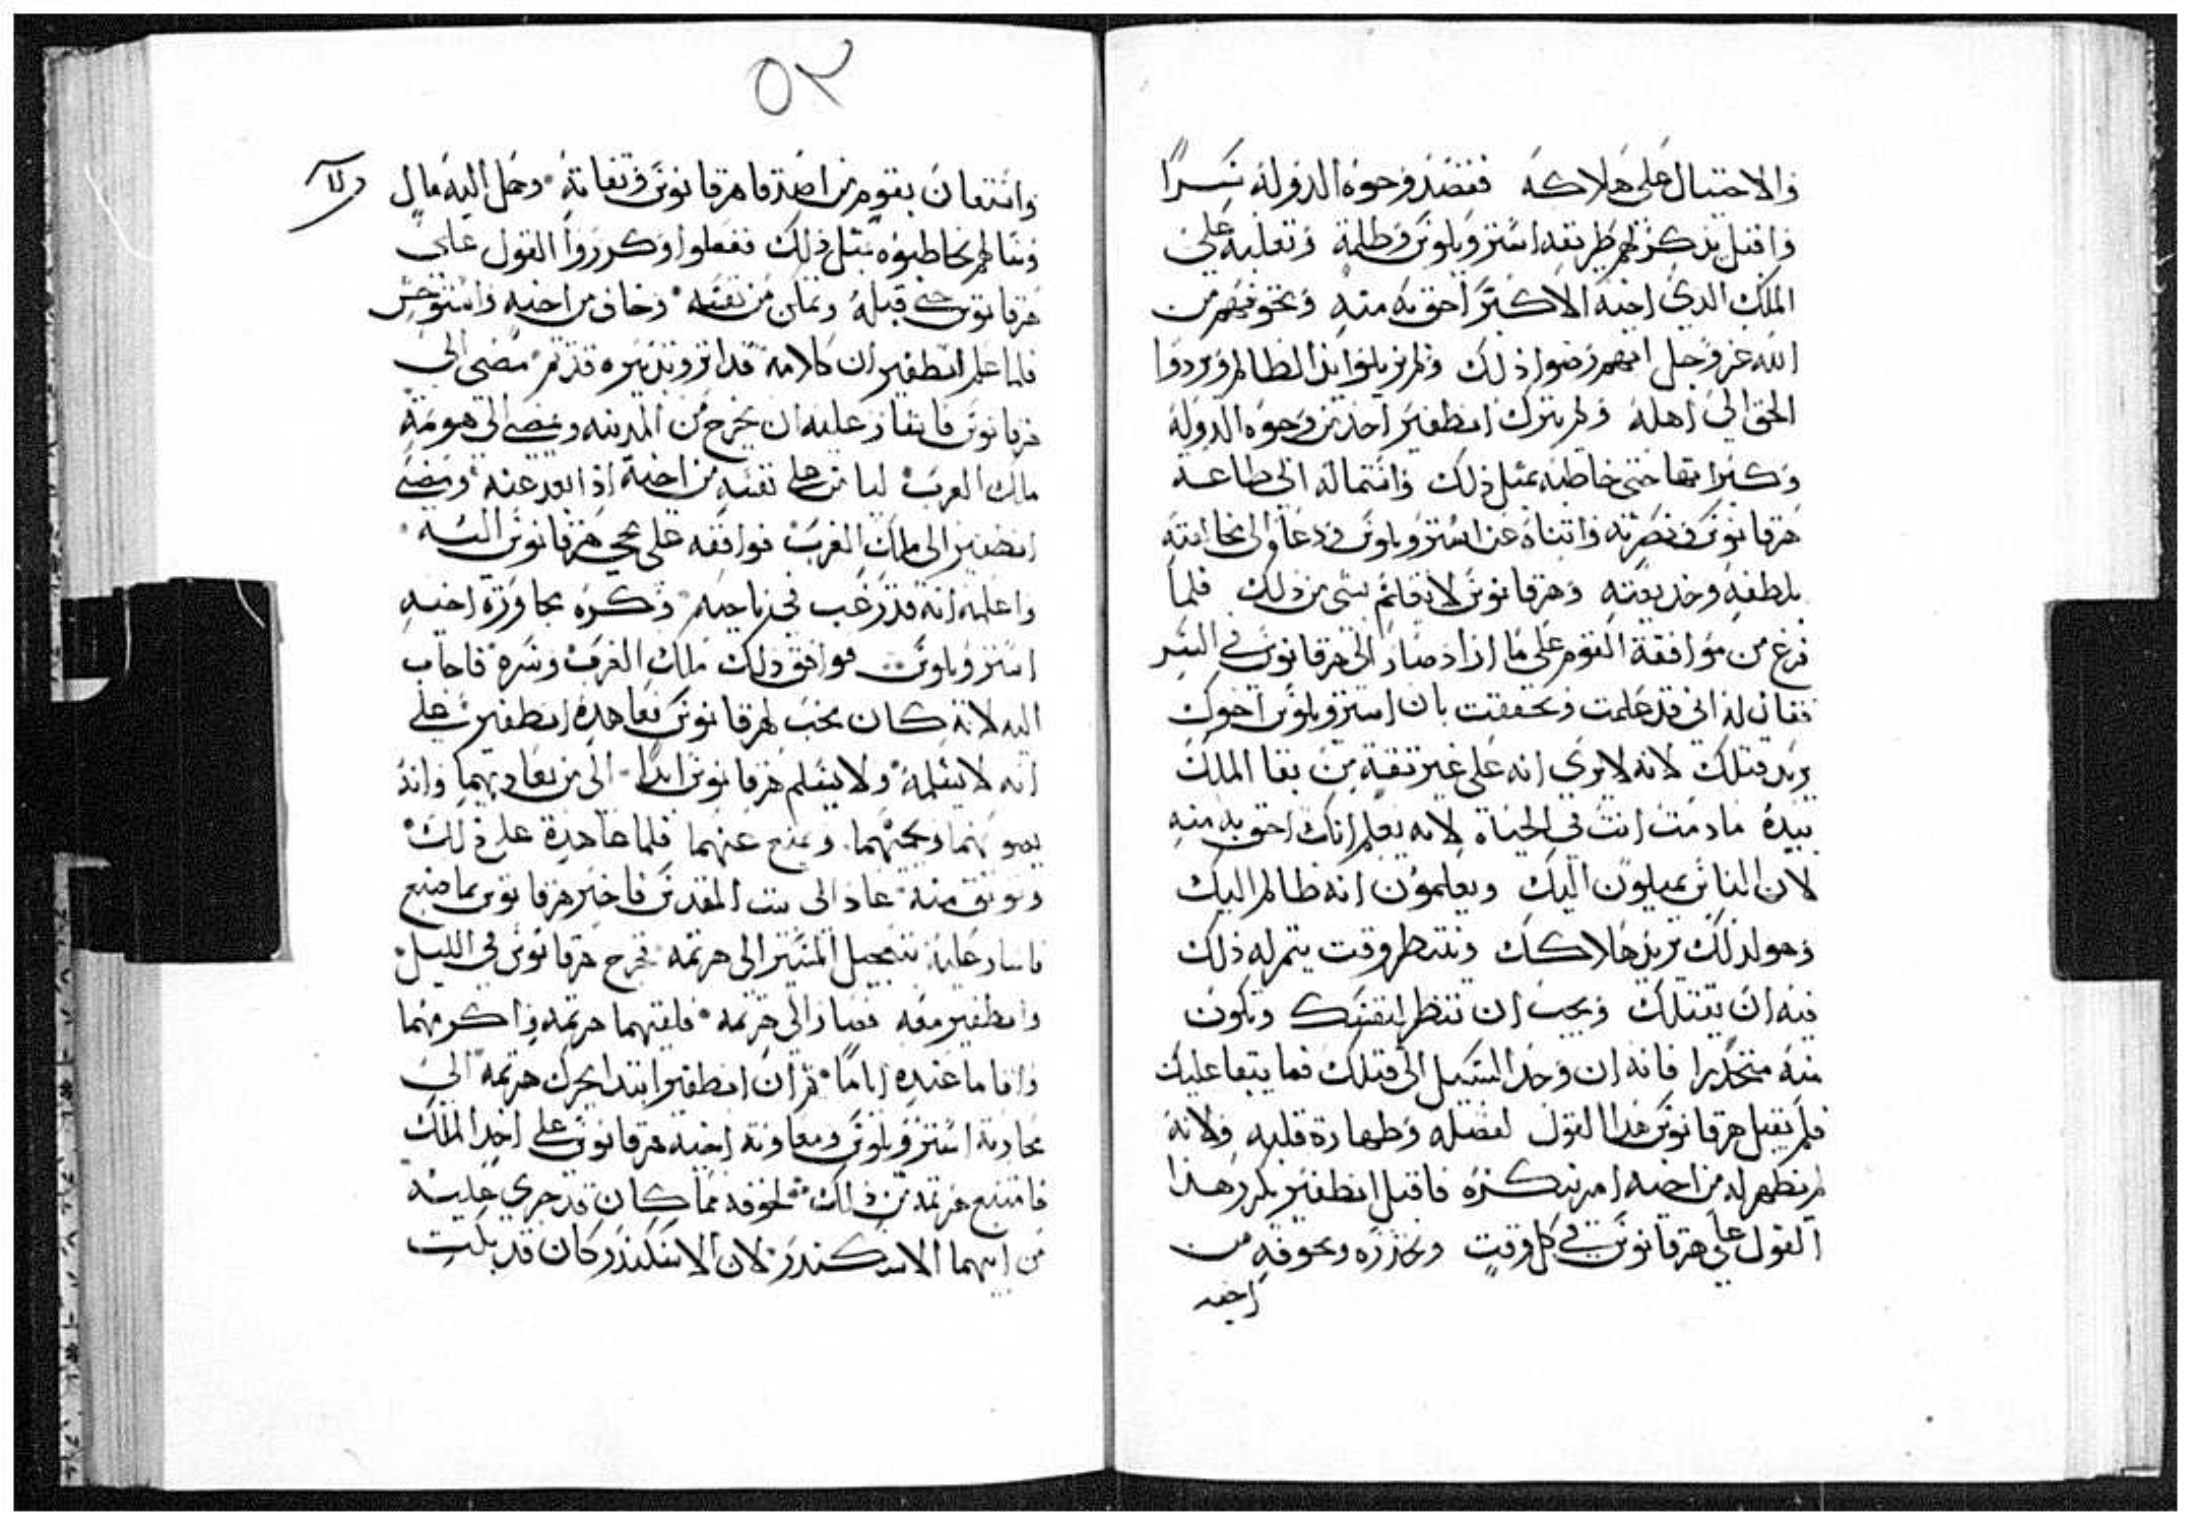 والاحتيال على هلاكه فقصد وجوه الدولة سرا
واقبل يذكر لهم طريقه استروبلوس وظلمه وتغلبه على
الملك الذي اخيه الاكبر احق به منه ويخوفهم من
الله عز وجل انهم رضوا ذلك ولم يزيلوا يد الظالم ويردوا
الحق الى اهله ولم يترك انطفير احد من وجوه الدولة
وكبرايها حتى خاطبه بمثل ذلك واستماله الى طاعة
هرقانوس ونصرته واثناه عن استروبلوس ودعاه الى مخالفته
بلطفه وخديعته وهرقانوس لا يعلم بشي من ذلك فلما
فرغ من موافقة القوم على ما اراد صار الى هرقانوس في السر
فقال له اني قد علمت وتحققت بان استروبلوس اخوك
يريد قتلك لانه لا يري انه على غير ثقة من بقا الملك
بيده ما دمت انت في الحياة لانه يعلم انك احق به منه
لان الناس يميلون اليك ويعلمون انه ظالم اليك
وهو لذلك يريد هلاكك وينتظر وقت يتم له ذلك
فيه ان يقتلك ويجب ان تنظر لنفسك وتكون
منه متحذرا فانه ان وجد السبيل الى قتلك فما يبقا عليك
فلم يقبل هرقانوس هذا القول لفضله وطهارة قلبه ولانه
لم يظهر له من اخيه امر ينكره فاقبل انطفير يكرر هذا
القول على هرقانوس في كل وقت ويحذره ويخوفه من
اخيه
٥٢
واستعان بقوم من اصدقا هرقانوس وثقاته وحمل اليهم مال
وسالهم يخاطبوه بمثل ذلك ففعلوا وكرروا القول على
هرقانوس حتى قبله وتمكن من نفسه وخاف من اخيه واستوحش
فلما علم انطفير ان كلامه قد اثر وتدبيره قد تم مضى الى
هرقانوس فاشار عليه ان يخرج من المدينه ويمضي الى هرثمة
ملك العرب ليامن على نفسه من اخيه اذا بعد عنه ومضى
انطفير الى ملك العرب فوافقه على مجي هرقانوس اليه
واعلمه انه قد رغب في ناحيته وكره مجاورة اخيه
استروبلوس فوافق ذلك ملك العرب وسره فاجاب
اليه لانه كان يحب لهرقانوس فعاهده انطفير على
انه لا يسلمه ولا يسلم هرقانوس ابدا الى من يعاديهما وانه
ينصرهما ويحميهما ويمنع عنهما فلما عاهده على ذلك
وتوثق منه عاد الى بيت المقدس فاخبر هرقانوس بما صنع
فاشار عليه بتعجيل المسير الى هرثمه فخرج هرقانوس في الليل
وانطفير معه فصار الى هرثمه فلقيهما هرثمه واكرمهما
واقاما عنده اياما ثم ان انطفير ابتدا يحرك هرثمه الى
محاربة استروبلوس ومعاونة اخيه هرقانوس على اخذ الملك
فامتنع هرثمه من ذلك لخوفه مما كان قد جري عليه
من ابيهما الاسكندر لان الاسكندر كان قد نكت